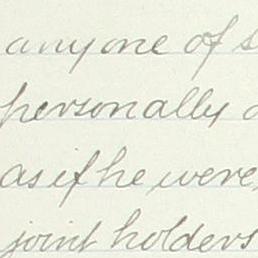 anyone of s
personally
as if he were,
joint holders